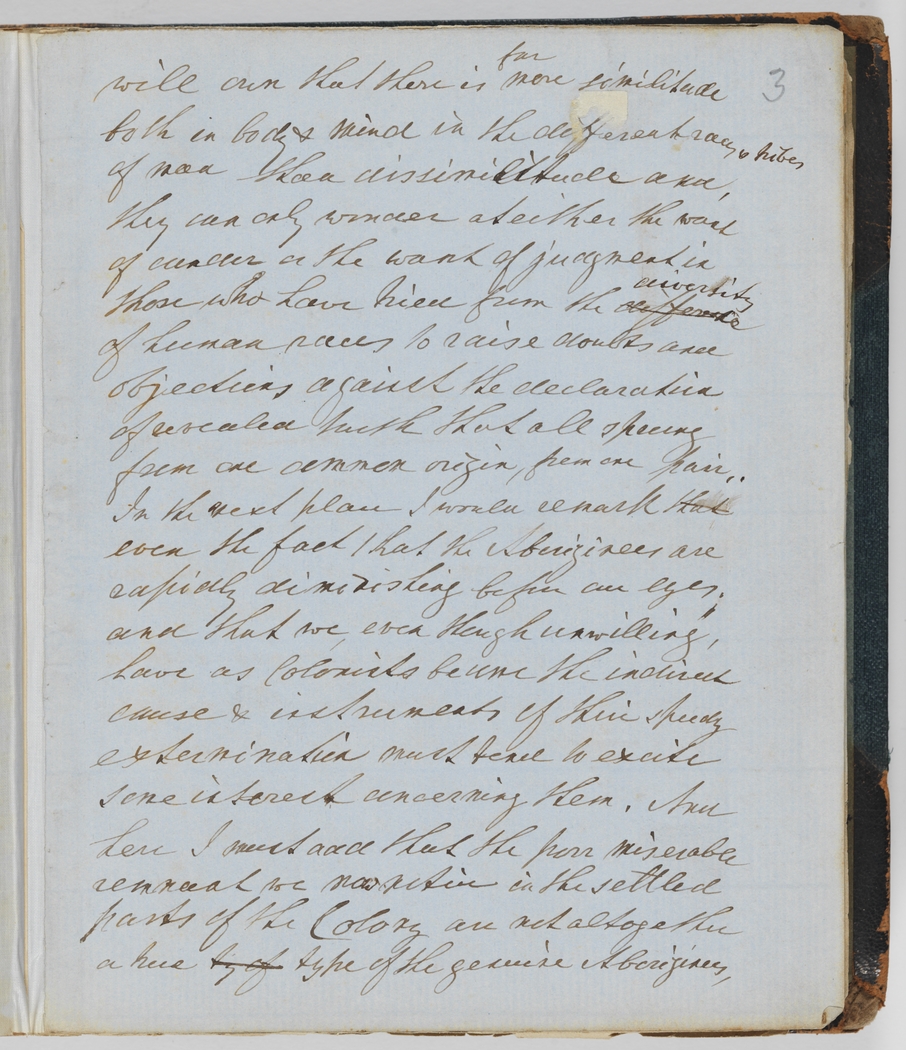 3
will own that there is far more similitude
both in body & mind in the different races & tribes
of man than dissimilitude and,
they can only wonder at either the want
of candor or the want of judgment in
those who have tried from the diversity difference
of human races to raise doubts and
objections against the declaration
of revealed truth that all sprung
from one common origin, from one pair.
In the next place I would remark that
even the fact that the Aborigines are
rapidly diminishing before our eyes,
and that we, even though unwilling,
have as Colonists become the indirect
cause & instruments of their speedy
extermination must tend to excite
some interest concerning them. And
here I must add that the poor miserable
remnant we now retain in the settled
parts of the Colony are not altogether
a true ty of type of the genuine Aborigines,